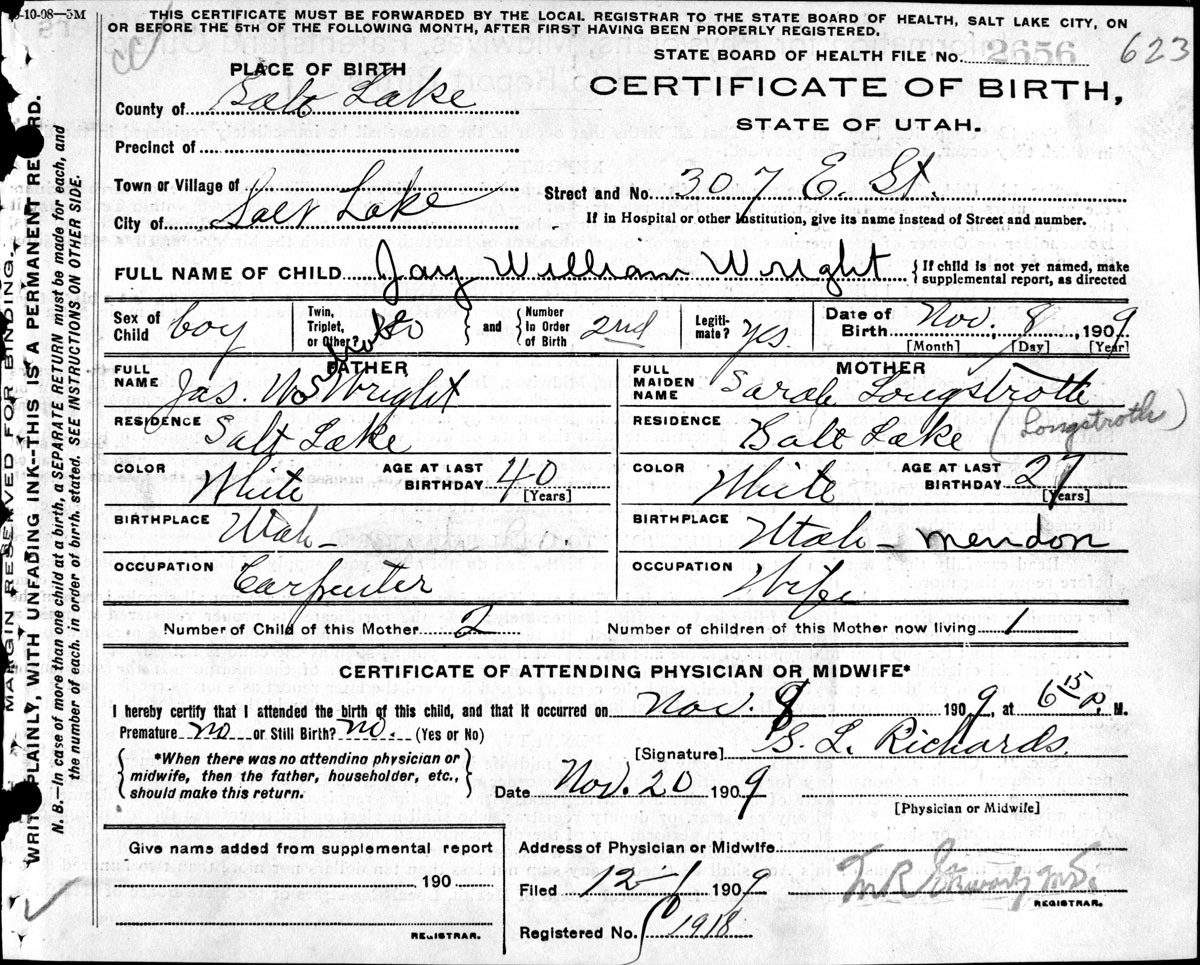 5-10-08—5M
THIS CERTIFICATE MUST BE FORWARDED BY THE LOCAL REGISTRAR TO THE STATE BOARD OF HEALTH, SALT LAKE CITY, ON
OR BEFORE THE 5TH OF THE FOLLOWING MONTH, AFTER FIRST HAVING BEEN PROPERLY REGISTERED.
STATE BOARD OF HEALTH FILE No. 2656 623
CERTIFICATE OF BIRTH,
STATE OF UTAH.
PLACE OF BIRTH
County of Salt Lake
Precinct of
Town or Village of
City of Salt Lake
Street and No. 307 E. St.
If in Hospital or other Institution, give its name instead of Street and number.
FULL NAME OF CHILD Jay William Wright {If child is not yet named, make supplemental report, as directed
Sex of Child boy Twin, Triplet, or Other? and Number In Order of Birth 2nd Legiti-mate? yes. Date of Birth Nov. 8, 1909
[Month] [Day] [Year]
FATHER
FULL NAME Jas. W. S. Wright
RESIDENCE Salt Lake
COLOR White AGE AT LAST BIRTHDAY 40 [Years]
BIRTHPLACE Utah
OCCUPATION Carpenter
MOTHER
FULL MAIDEN NAME Sarah Longstroth
(Longstroth)
RESIDENCE Salt Lake
COLOR White AGE AT LAST BIRTHDAY 27 [Years]
BIRTHPLACE Utah - mendon
OCCUPATION Wife
Number of Child of this Mother 2 Number of children of this Mother now living 1
CERTIFICATE OF ATTENDING PHYSICIAN OR MIDWIFE*
I hereby certify that I attended the birth of this child, and that it occurred on Nov. 8 1909, at 6 15 P. M.
Premature no or Still Birth? no. (Yes or No)
{*When there was no attending physician or midwife, then the father, householder, etc., should make this return.}
[Signature] G. L. Richards
Date Nov. 20 1909
[Physician or Midwife]
Give name added from supplemental report
190
REGISTRAR.
Address of Physician or Midwife
Filed 12-1 1909
REGISTRAR.
Registered No. 1918
MARGIN RESERVED FOR BINDING.
WRITE PLAINLY, WITH UNFADING INK--THIS IS A PERMANENT RECORD.
N.B.—In case of more than one child at a birth, a SEPARATE RETURN must be made for each, and
the number of each, in order of birth, stated. SEE INSTRUCTIONS ON OTHER SIDE.